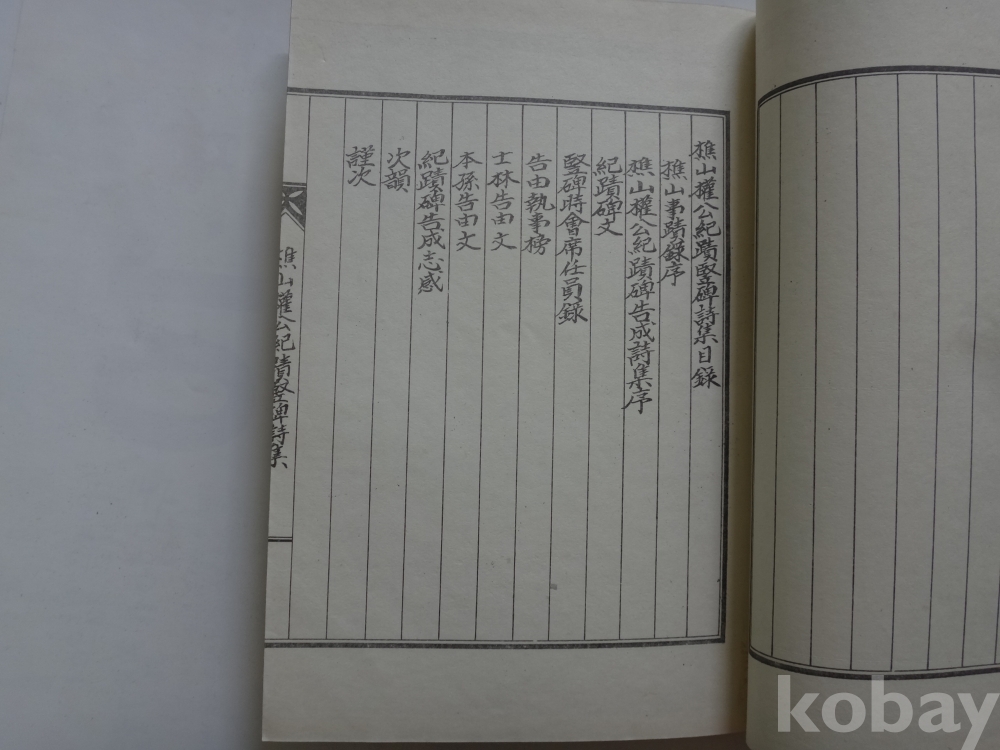 樵山權公紀蹟竪碑詩集目錄
樵山事蹟錄序
樵山權公紀蹟碑告成詩集序
紀蹟碑文
竪碑時會席任員錄
告由執事榜
士林告由文
本孫告由文
紀蹟碑告成志感
次韻
謹次
樵山權公紀蹟竪碑詩集
kobay